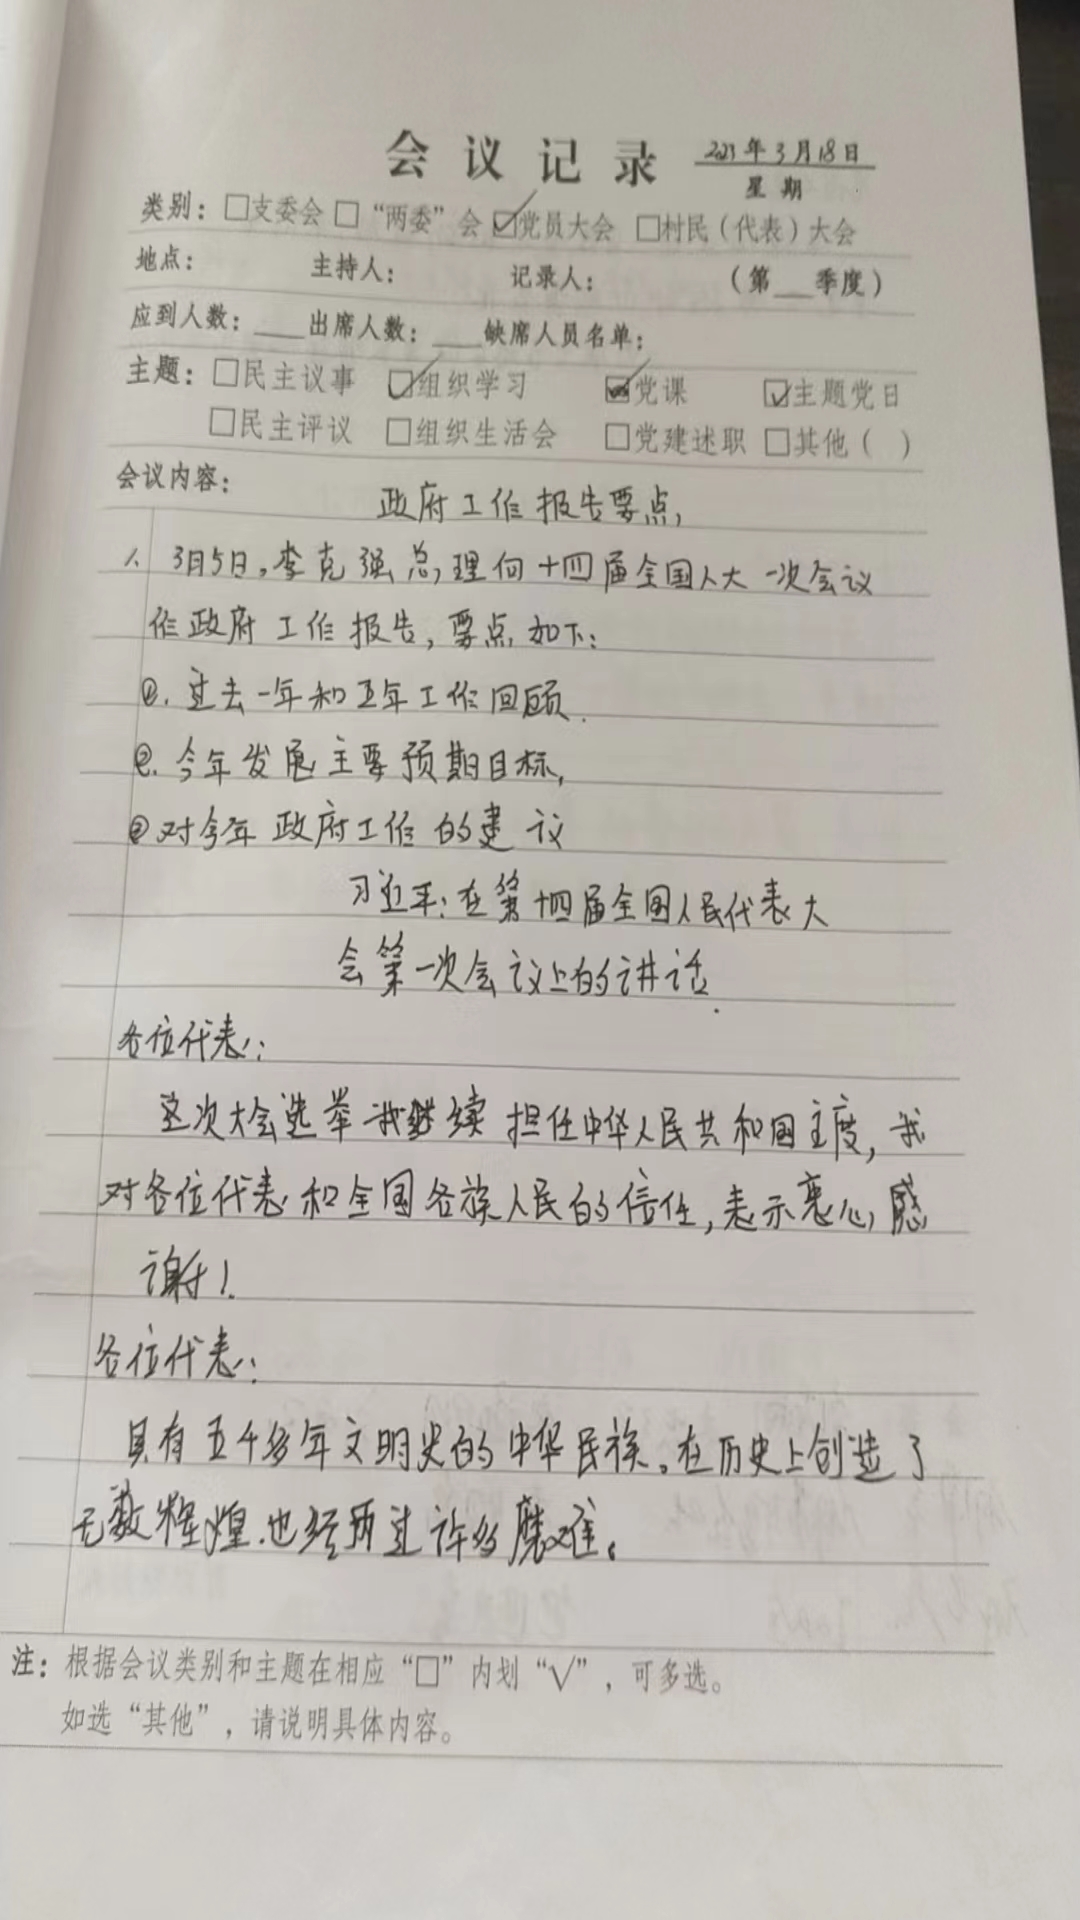 会议记录 2023年3月18日
星期
类别：□支委会 □“两委”会 ☑党员大会 □村民（代表）大会
地点： 主持人： 记录人： （第__季度）
应到人数：___出席人数：___缺席人员名单：
主题：□民主议事 ☑组织学习 ☑党课 ☑主题党日
□民主评议 □组织生活会 □党建述职 □其他（ ）
会议内容： 政府工作报告要点，
1、3月5日，李克强总理向十四届全国人大一次会议
作政府工作报告，要点如下：
①.过去一年和五年工作回顾.
②.今年发展主要预期目标，
③对今年政府工作的建议
习近平：在第十四届全国人民代表大
会第一次会议上的讲话.
各位代表：
这次大会选举我继续担任中华人民共和国主度，我
对各位代表和全国各族人民的信任，表示衷心感
谢！
各位代表：
具有五千多年文明史的中华民族。在历史上创造了
无数辉煌.也经历过许多磨难。
注：根据会议类别和主题在相应“□”内划“√”，可多选。
如选“其他”，请说明具体内容。